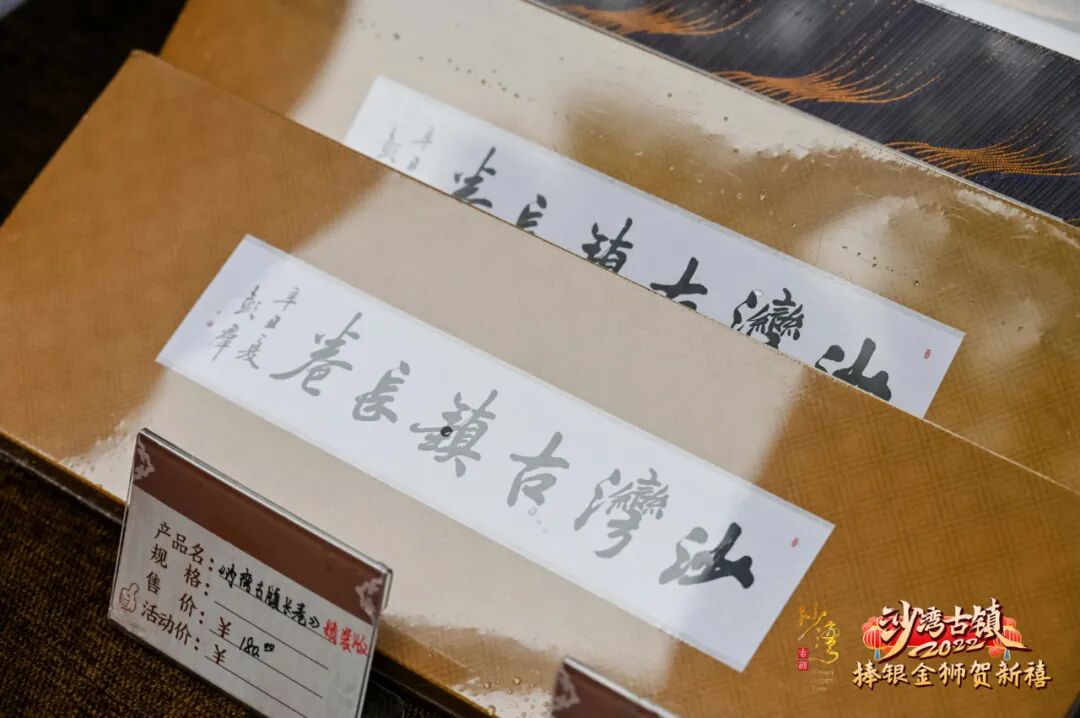 沙灣古鎮長卷
沙灣古鎮長卷
辛丑夏
彭章
辛丑
产品名：《沙湾古镇长卷》
精装
规格：
售价：¥ 180.00
活动价：¥
沙湾
古镇
沙湾古镇
2022
捧银金狮贺新禧